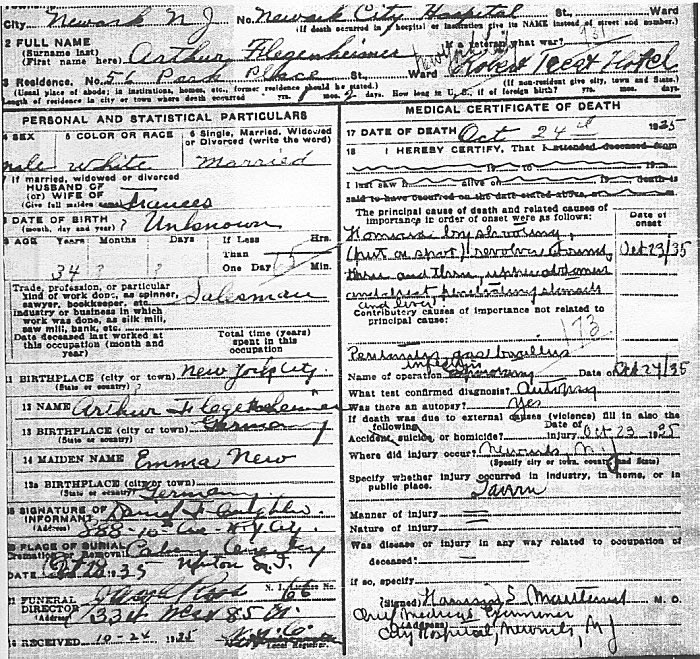 City, Newark N J No. Newark City Hospital St., Ward
(If death occurred in a hospital or institution give its NAME instead of street and number.)
2 FULL NAME
(Surname last)
(First name here) Arthur Flegenheimer If a veteran, what war?
3 Residence. No. 56 Park Place St., Ward Robert Treat Hotel
(Usual place of abode; in institutions, homes, etc., former residence should be stated.) (If non-resident give city, town and State.)
Length of residence in city or town where death occurred yrs. mos. days. How long in U. S., if of foreign birth? yrs. mos. days.
PERSONAL AND STATISTICAL PARTICULARS
4 SEX 5 COLOR OR RACE 6 Single, Married, Widowed
or Divorced (write the word)
male white married
7 If married, widowed or divorced
HUSBAND OF
(or) WIFE OF Frances
Give full maiden
8 DATE OF BIRTH Unknown
(month, day and year) ?
9 AGE Years Months Days If Less Hrs.
Than
34 ? ? One Day Min.
Trade, profession, or particular
kind of work done, as spinner,
sawyer, bookkeeper, etc. Salesman
Industry or business in which
work was done, as silk mill,
saw mill, bank, etc.
Date deceased last worked at
this occupation (month and
year)
Total time (years)
spent in this
occupation
11 BIRTHPLACE (city or town) New York City
(State or country)
12 NAME Arthur Flegenheimer
13 BIRTHPLACE (city or town) Germany
(State or country)
14 MAIDEN NAME Emma New
13a BIRTHPLACE (city or town)
(State or country) Germany
SIGNATURE OF
INFORMANT
(Address) 888-10th Ave. N.Y. City.
PLACE OF BURIAL
Cremation or Removal
DATE 1935
21 FUNERAL N. J. License No. 66
DIRECTOR
(Address) 334 West 85 St.
RECEIVED 10-24 1935
Local Registrar.
MEDICAL CERTIFICATE OF DEATH
17 DATE OF DEATH Oct 24th 1935
18 I HEREBY CERTIFY, That I attended deceased from
19 to 19
I last saw h alive on 19 , death is
said to have occurred on the date stated above, at m
The principal cause of death and related causes of
importance in order of onset were as follows:
Date of
onset
Homicide by shooting,
(put on spot) revolver wounds Oct 23/35
three and three, upper abdomen
and chest penetrating stomach
and liver
Contributory causes of importance not related to
principal cause: 173
Peritonitis gas bacillus
infection
Name of operation Date of Oct 24/35
What test confirmed diagnosis? Autopsy
Was there an autopsy? Yes
If death was due to external causes (violence) fill in also the
following
Accident, suicide, or homicide? Date of
injury Oct 23 1935
Where did injury occur? Newark, N.J.
(Specify city or town, county and State)
Specify whether injury occurred in industry, in home, or in
public place.
Tavern
Manner of injury
Nature of injury
Was disease or injury in any way related to occupation of
deceased?
If so, specify
(Signed) Harrison S. Martland M. D.
Chief Medical Examiner
(Address)
City Hospital, Newark, N J